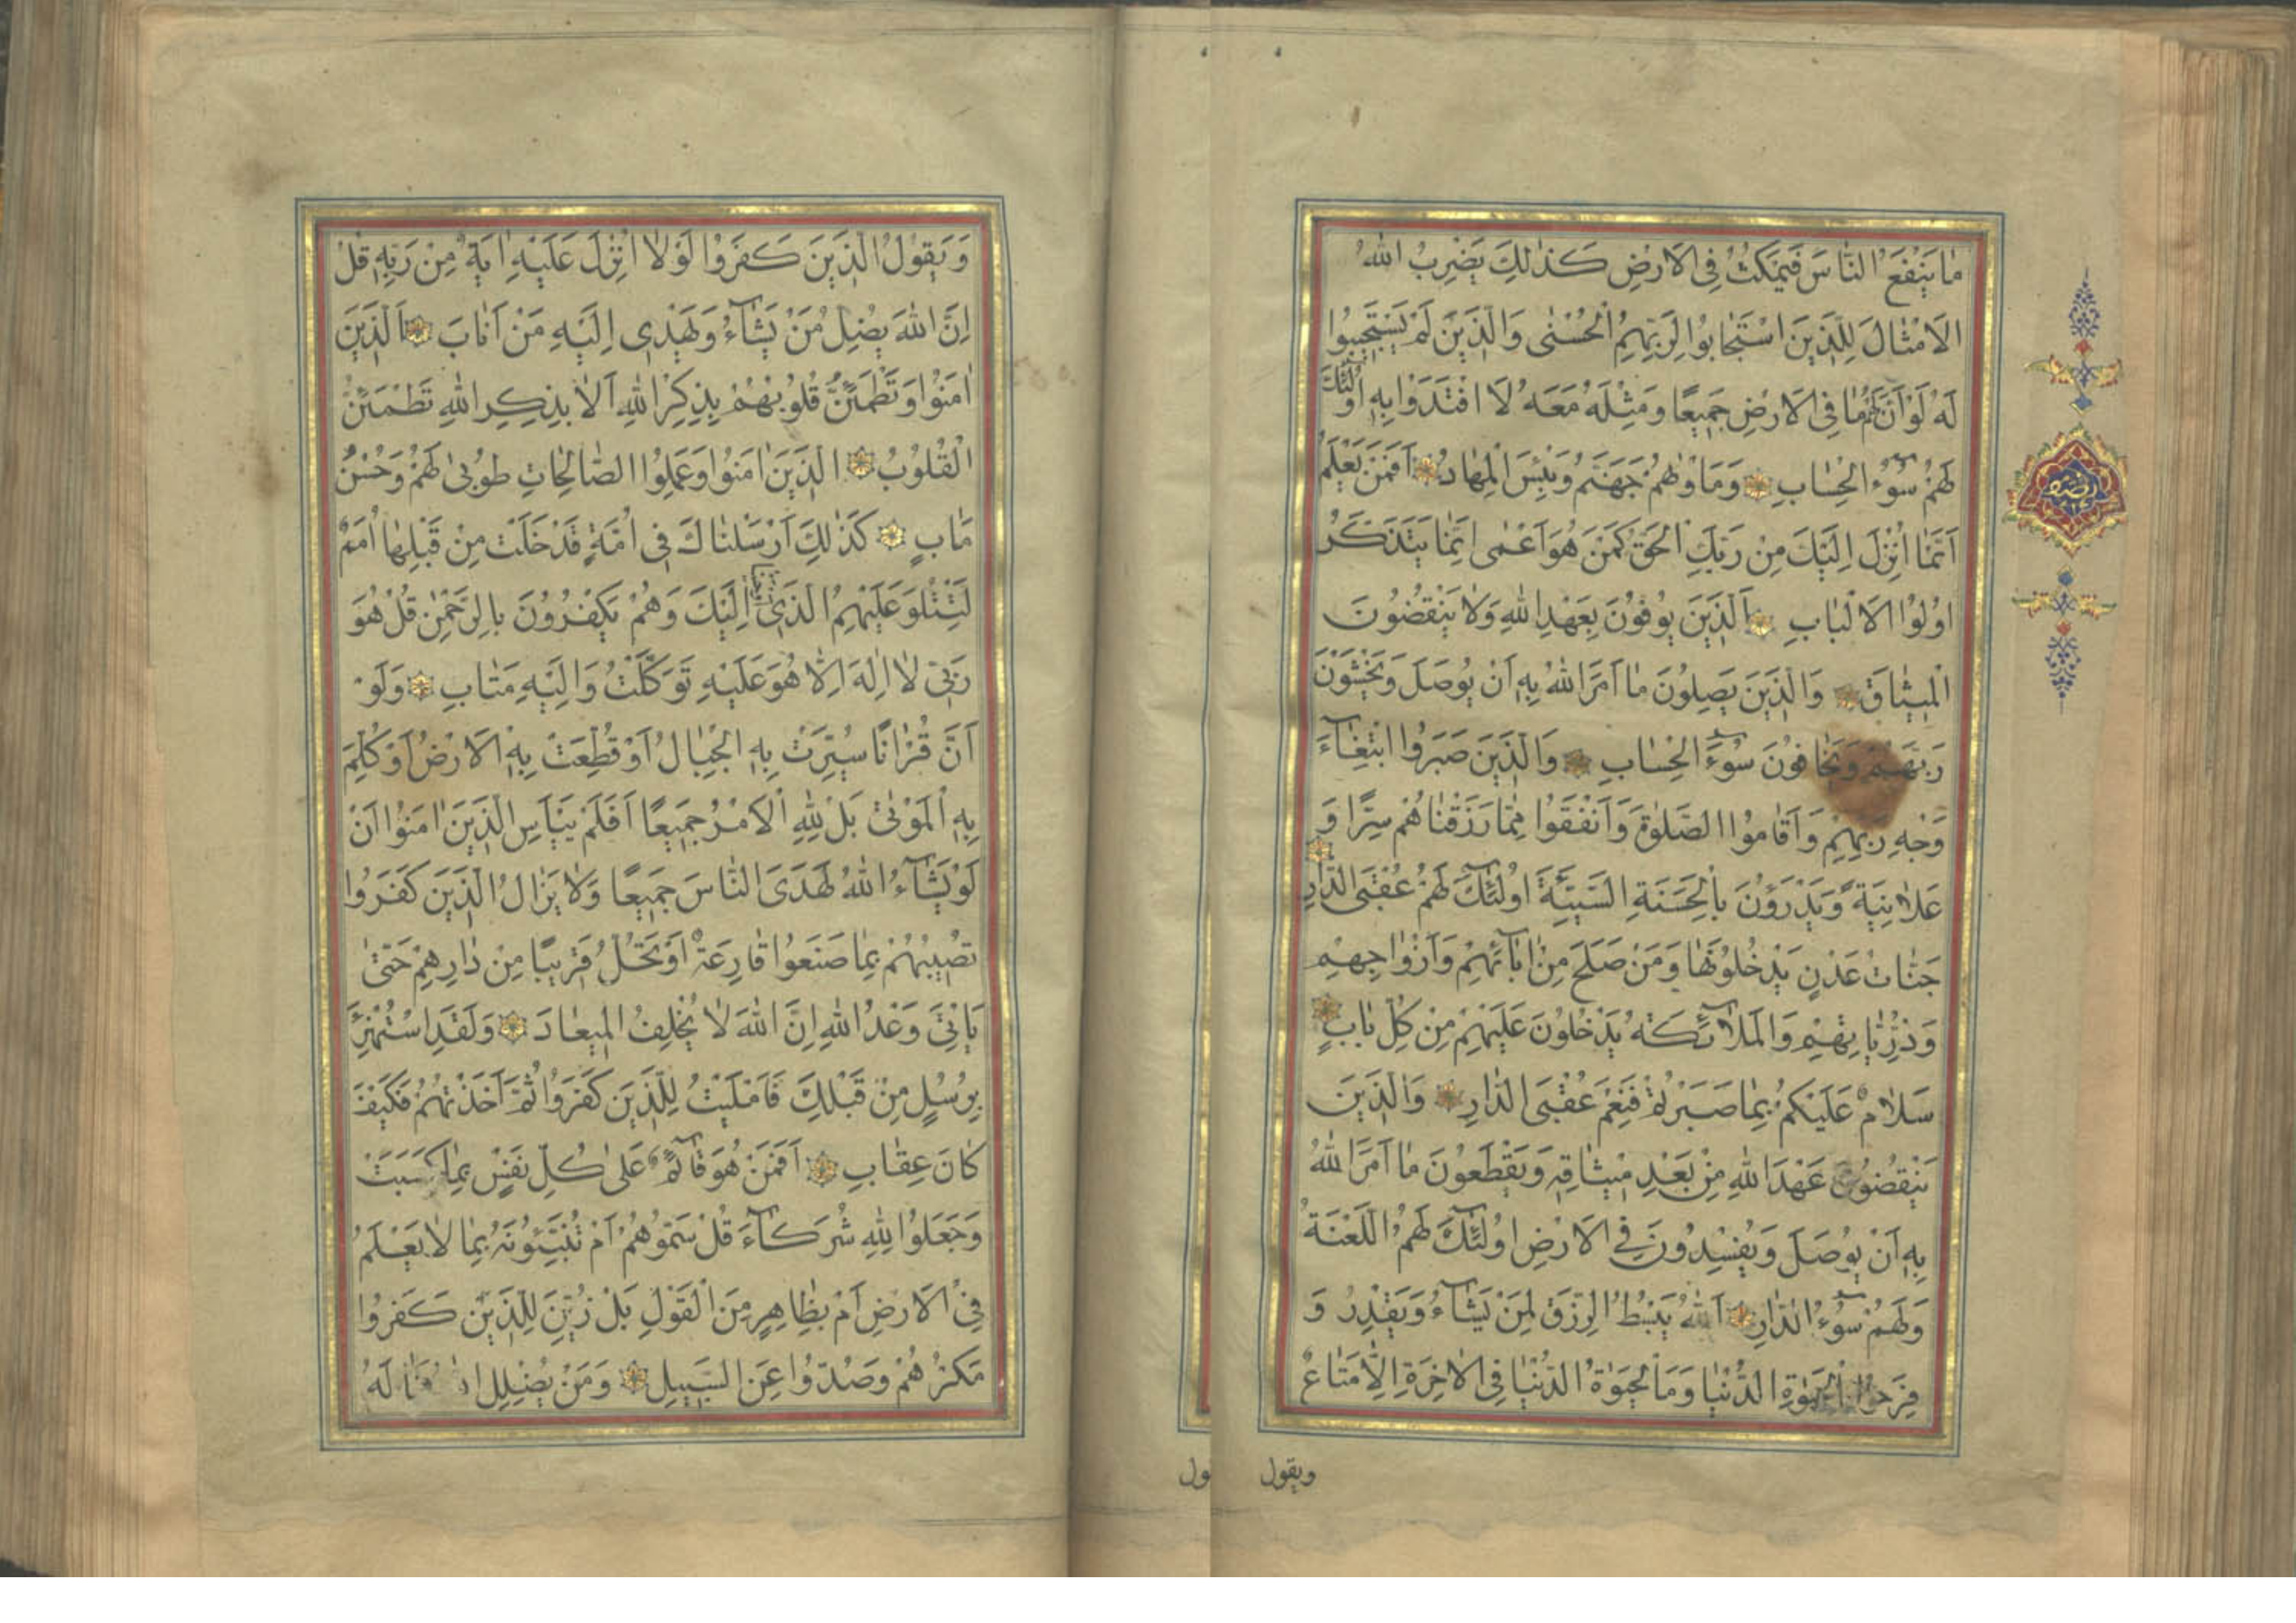 مٰا يَنْفَعُ النّٰاسَ فَيَمْكُثُ فِي الْاَرْضِ كَذٰلِكَ يَضْرِبُ اللهُ
الْاَمْثٰالَ لِلَّذِينَ اسْتَجٰابُوا لِرَبِّهِمُ الْحُسْنٰى وَالَّذِينَ لَمْ يَسْتَجِيبُوا
لَهُ لَوْ اَنَّ لَهُمْ مٰا فِي الْاَرْضِ جَمِيعًا وَمِثْلَهُ مَعَهُ لَا افْتَدَوْا بِهِ اُولٰئِكَ
لَهُمْ سُوۤءُ الْحِسٰابِ وَمَاْوٰيهُمْ جَهَنَّمُ وَبِئْسَ الْمِهٰادُ اَفَمَنْ يَعْلَمُ
اَنَّمٰا اُنْزِلَ اِلَيْكَ مِنْ رَبِّكَ الْحَقُّ كَمَنْ هُوَ اَعْمٰى اِنَّمٰا يَتَذَكَّرُ
اُولُوا الْاَلْبٰابِ اَلَّذِينَ يُوفُونَ بِعَهْدِ اللهِ وَلٰا يَنْقُضُونَ
الْمِيثٰاقَ وَالَّذِينَ يَصِلُونَ مٰا اَمَرَ اللهُ بِهِ اَنْ يُوصَلَ وَيَخْشَوْنَ
رَبَّهُمْ وَيَخٰافُونَ سُوۤءَ الْحِسٰابِ وَالَّذِينَ صَبَرُوا ابْتِغٰاۤءَ
وَجْهِ رَبِّهِمْ وَاَقٰامُوا الصَّلٰوةَ وَاَنْفَقُوا مِمّٰا رَزَقْنٰاهُمْ سِرًّا وَ
عَلٰانِيَةً وَيَدْرَؤُنَ بِالْحَسَنَةِ السَّيِّئَةَ اُولٰۤئِكَ لَهُمْ عُقْبَى الدّٰارِ
جَنّٰاتُ عَدْنٍ يَدْخُلُونَهٰا وَمَنْ صَلَحَ مِنْ اٰبٰاۤئِهِمْ وَاَزْوٰاجِهِمْ
وَذُرِّيّٰاتِهِمْ وَالْمَلٰاۤئِكَةُ يَدْخُلُونَ عَلَيْهِمْ مِنْ كُلِّ بٰابٍ
سَلٰامٌ عَلَيْكُمْ بِمٰا صَبَرْتُمْ فَنِعْمَ عُقْبَى الدّٰارِ وَالَّذِينَ
يَنْقُضُونَ عَهْدَ اللهِ مِنْ بَعْدِ مِيثٰاقِهِ وَيَقْطَعُونَ مٰا اَمَرَ اللهُ
بِهِ اَنْ يُوصَلَ وَيُفْسِدُونَ فِي الْاَرْضِ اُولٰۤئِكَ لَهُمُ اللَّعْنَةُ
وَلَهُمْ سُوۤءُ الدّٰارِ اَللهُ يَبْسُطُ الرِّزْقَ لِمَنْ يَشٰاۤءُ وَيَقْدِرُ وَ
فَرِحُوا بِالْحَيٰوةِ الدُّنْيٰا وَمَا الْحَيٰوةُ الدُّنْيٰا فِي الْاٰخِرَةِ اِلّٰا مَتٰاعٌ
ويقول
وَيَقُولُ الَّذِينَ كَفَرُوا لَوْلٰا اُنْزِلَ عَلَيْهِ اٰيَةٌ مِنْ رَبِّهِ قُلْ
اِنَّ اللهَ يُضِلُّ مَنْ يَشٰاۤءُ وَيَهْدِي اِلَيْهِ مَنْ اَنٰابَ اَلَّذِينَ
اٰمَنُوا وَتَطْمَئِنُّ قُلُوبُهُمْ بِذِكْرِ اللهِ اَلٰا بِذِكْرِ اللهِ تَطْمَئِنُّ
الْقُلُوبُ الَّذِينَ اٰمَنُوا وَعَمِلُوا الصّٰالِحٰاتِ طُوبىٰ لَهُمْ وَحُسْنُ
مَاٰبٍ كَذٰلِكَ اَرْسَلْنٰاكَ فِي اُمَّةٍ قَدْ خَلَتْ مِنْ قَبْلِهٰا اُمَمٌ
لِتَتْلُوَ عَلَيْهِمُ الَّذِي اِلَيْكَ وَهُمْ يَكْفُرُونَ بِالرَّحْمٰنِ قُلْ هُوَ
رَبِّي لٰا اِلٰهَ اِلّٰا هُوَ عَلَيْهِ تَوَكَّلْتُ وَاِلَيْهِ مَتٰابِ وَلَوْ
اَنَّ قُرْاٰنًا سُيِّرَتْ بِهِ الْجِبٰالُ اَوْ قُطِّعَتْ بِهِ الْاَرْضُ اَوْ كُلِّمَ
بِهِ الْمَوْتىٰ بَلْ لِلّٰهِ الْاَمْرُ جَمِيعًا اَفَلَمْ يَيْاَسِ الَّذِينَ اٰمَنُوا اَنْ
لَوْ يَشٰاۤءُ اللهُ لَهَدَى النّٰاسَ جَمِيعًا وَلٰا يَزٰالُ الَّذِينَ كَفَرُوا
تُصِيبُهُمْ بِمٰا صَنَعُوا قٰارِعَةٌ اَوْ تَحُلُّ قَرِيبًا مِنْ دٰارِهِمْ حَتّىٰ
يَاْتِيَ وَعْدُ اللهِ اِنَّ اللهَ لٰا يُخْلِفُ الْمِيعٰادَ وَلَقَدِ اسْتُهْزِئَ
بِرُسُلٍ مِنْ قَبْلِكَ فَاَمْلَيْتُ لِلَّذِينَ كَفَرُوا ثُمَّ اَخَذْتُهُمْ فَكَيْفَ
كٰانَ عِقٰابِ اَفَمَنْ هُوَ قٰاۤئِمٌ عَلىٰ كُلِّ نَفْسٍ بِمٰا كَسَبَتْ
وَجَعَلُوا لِلّٰهِ شُرَكٰاۤءَ قُلْ سَمُّوهُمْ اَمْ تُنَبِّئُونَهُ بِمٰا لٰا يَعْلَمُ
فِي الْاَرْضِ اَمْ بِظٰاهِرٍ مِنَ الْقَوْلِ بَلْ زُيِّنَ لِلَّذِينَ كَفَرُوا
مَكْرُهُمْ وَصُدُّوا عَنِ السَّبِيلِ وَمَنْ يُضْلِلِ لَهُ